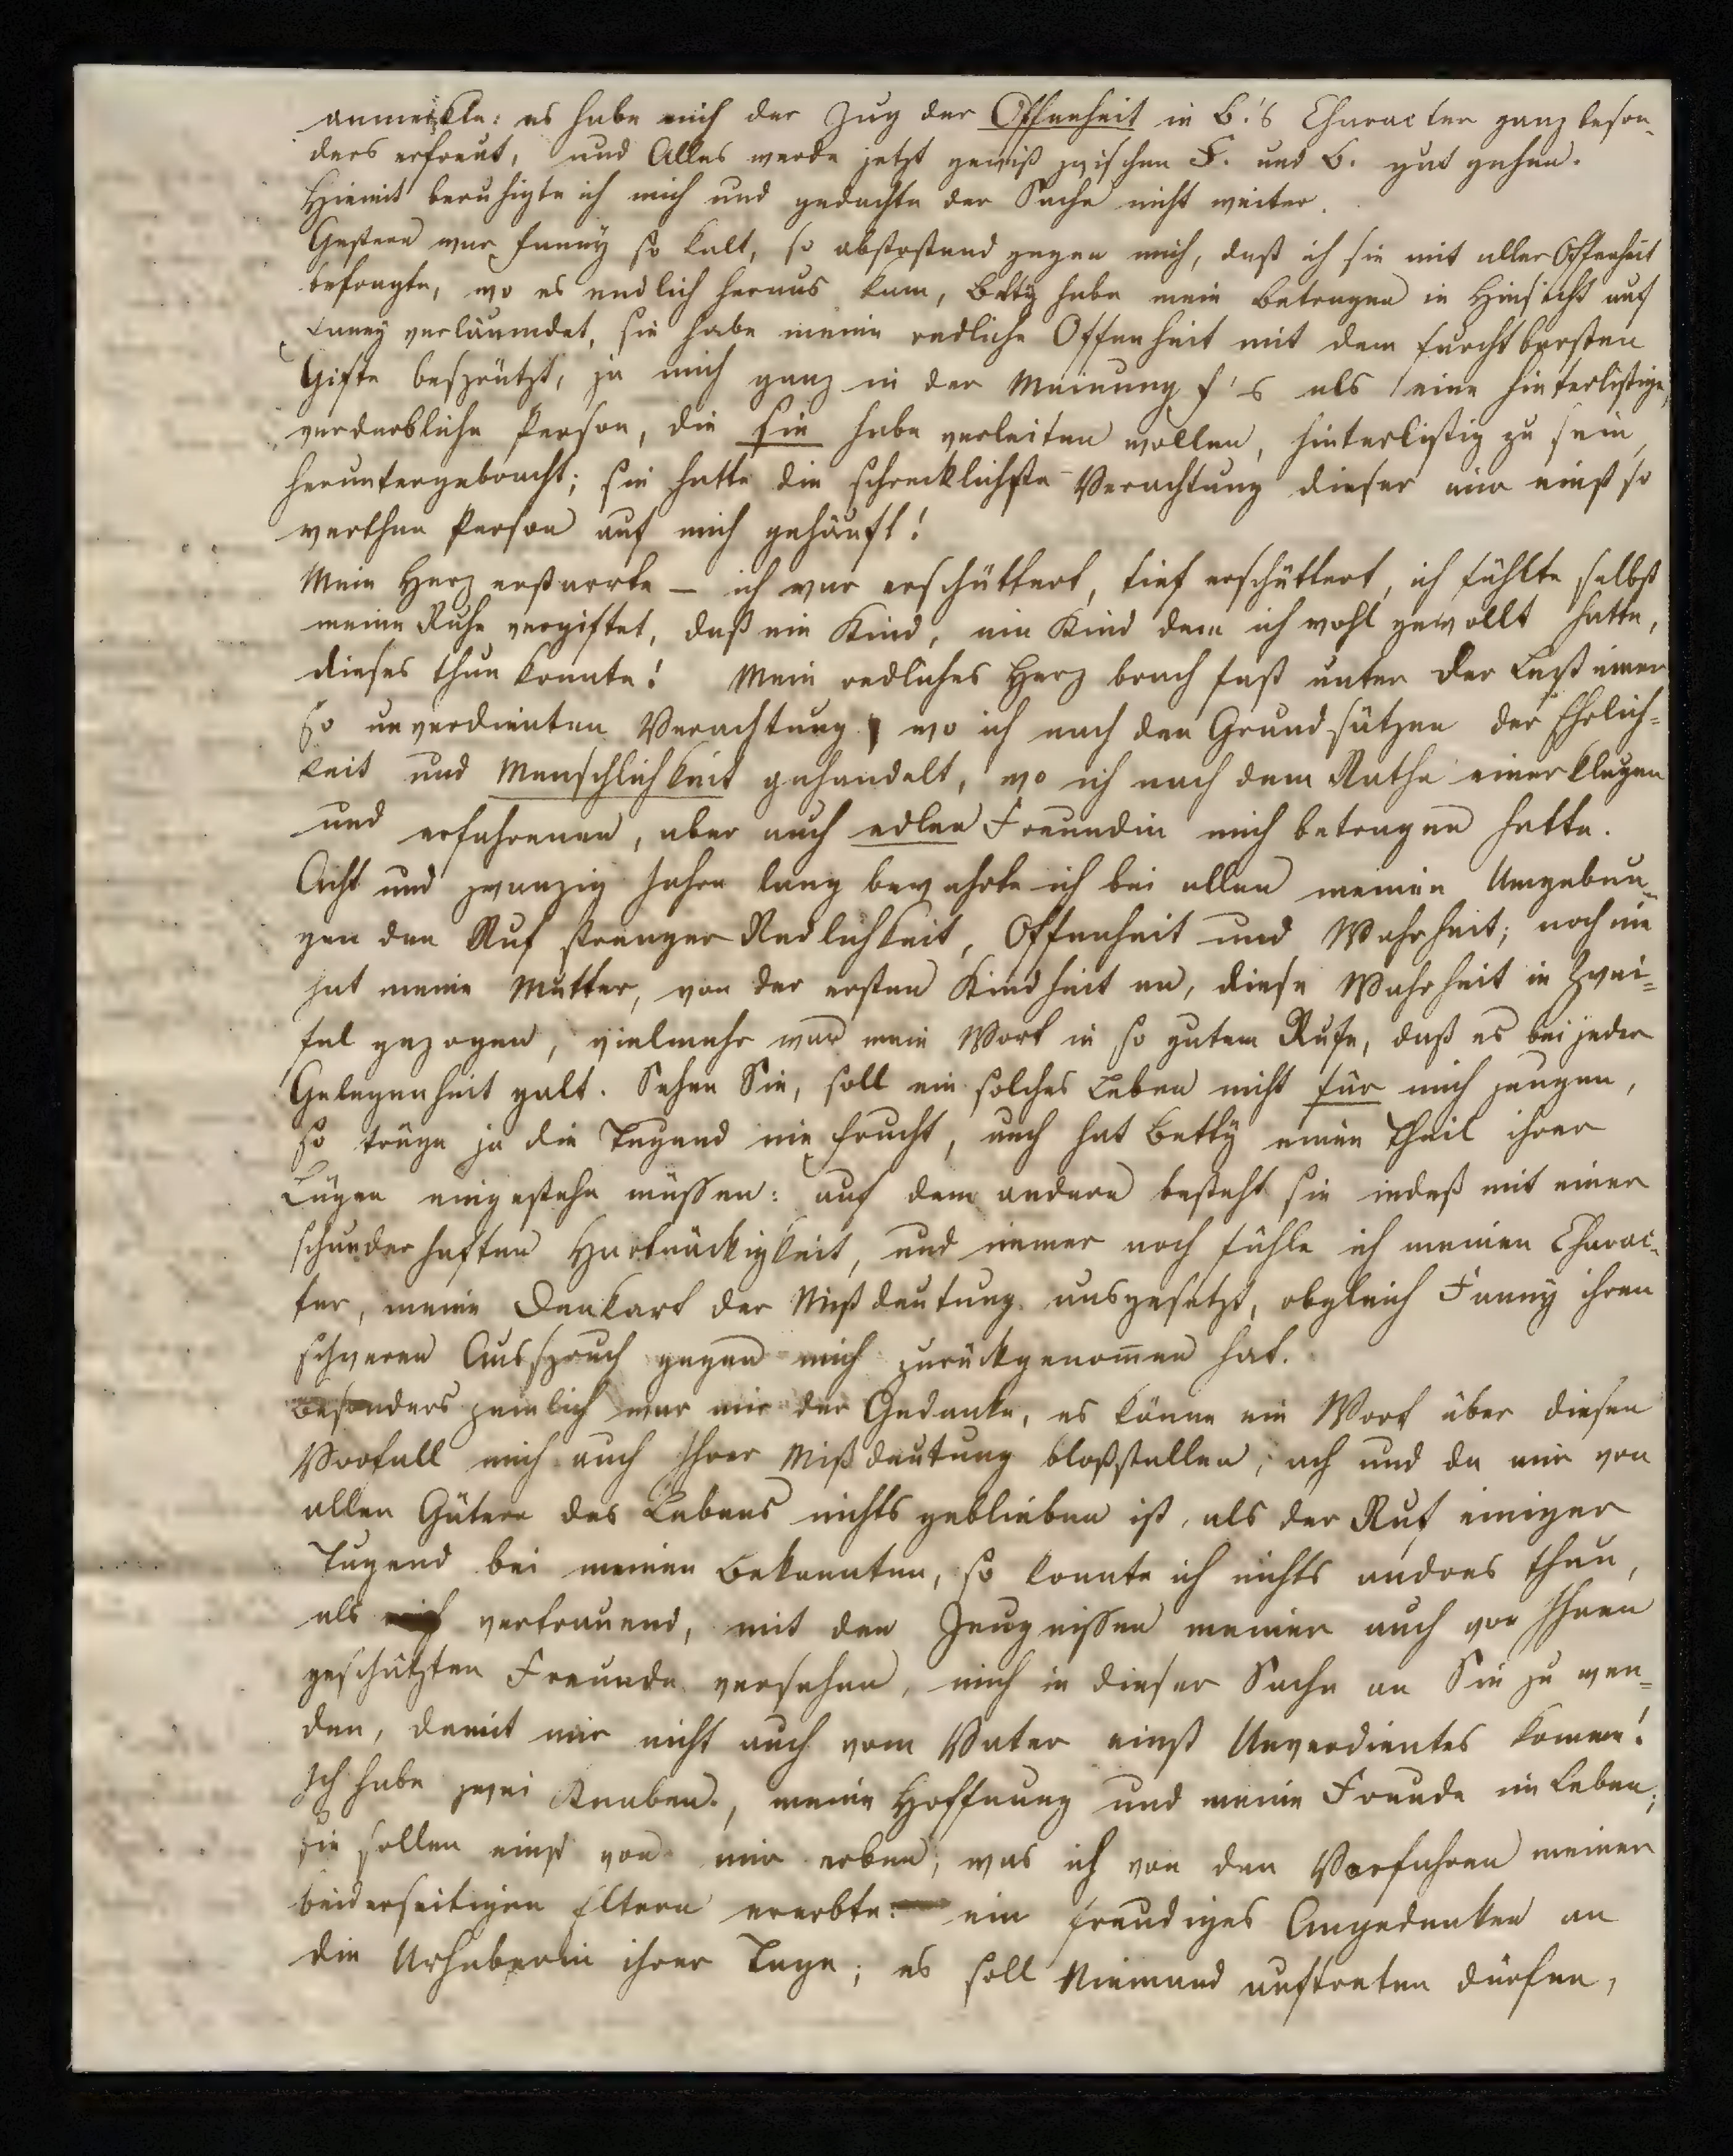 anmerkte: es habe mich der Zug der Offenheit in B.'s Character ganz beson-
ders erfreut, und Alles werde jetzt gewiß zwischen F. und B. gut gehen.
Hiemit beruhigte ich mich und gedachte der Sache nicht weiter.
Gestern war Fanny so kalt, so abstoßend gegen mich, daß ich sie mit aller Offenheit
befragte, wo es endlich heraus kam, Betty habe mein Betragen in Hinsicht auf
Fanny verläumdet, sie habe meine redliche Offenheit mit dem furchtbarsten
Gifte besprützt, ja mich ganz in der Meinung F's als eine hinterlistige,
verderbliche Person, die sie habe verleiten wollen, hinterlistig zu sein,
heruntergebracht; sie hatte die schrecklichste Verachtung dieser mir einst so
werthen Person auf mich gehäuft!
Mein Herz erstarrte — ich war erschüttert, tief erschüttert, ich fühlte selbst
meine Ruhe vergiftet, daß ein Kind, ein Kind dem ich wohl gewollt hatte,
dieses thun konnte! Mein redliches Herz brach fast unter der Last einer
so unverdienten Verachtung, wo ich nach den Grundsätzen der Ehrlich=
keit und Menschlichkeit gehandelt, wo ich nach dem Rathe einer klugen
und erfahrenen, aber auch edlen Freundin mich betragen hatte.
Acht und zwanzig Jahre lang bewahrte ich bei allen meinen Umgebun-
gen den Ruf strenger Redlichkeit, Offenheit und Wahrheit; noch nie
hat meine Mutter, von der ersten Kindheit an, diese Wahrheit in Zwei=
fel gezogen, vielmehr war mein Wort in so gutem Rufe, daß es bei jeder
Gelegenheit galt. Sehen Sie, soll ein solches Leben nicht für mich zeugen,
so trüge ja die Tugend nie Frucht, auch hat Betty einen Theil ihrer
Lügen eingestehn müssen: auf dem andern besteht sie indeß mit einer
schauderhaften Hartnäckigkeit, und immer noch fühle ich meinen Charac-
ter, meine Denkart der Mißdeutung ausgesetzt, obgleich Fanny ihren
schweren Ausspruch gegen mich zurückgenommen hat.
Besonders peinlich war mir der Gedanke, es könne ein Wort über diesen
Vorfall mich auch Ihrer Mißdeutung bloßstellen; ach und da mir von
allen Gütern des Lebens nichts geblieben ist, als der Ruf einiger
Tugend bei meinen Bekannten, so konnte ich nichts andres thun,
als vertrauend, mit den Zeugnissen meiner auch von Ihnen
geschätzten Freunde versehen, mich in dieser Sache an Sie zu wen=
den, damit mir nicht auch vom Vater einst Unverdientes komme!
Ich habe zwei Knaben, meine Hoffnung und meine Freude im Leben;
sie sollen einst von mir erben, was ich von den Vorfahren meiner
beiderseitigen Eltern ererbte: ein freudiges Angedenken an
die Urheberin ihrer Tage; es soll Niemand auftreten dürfen,